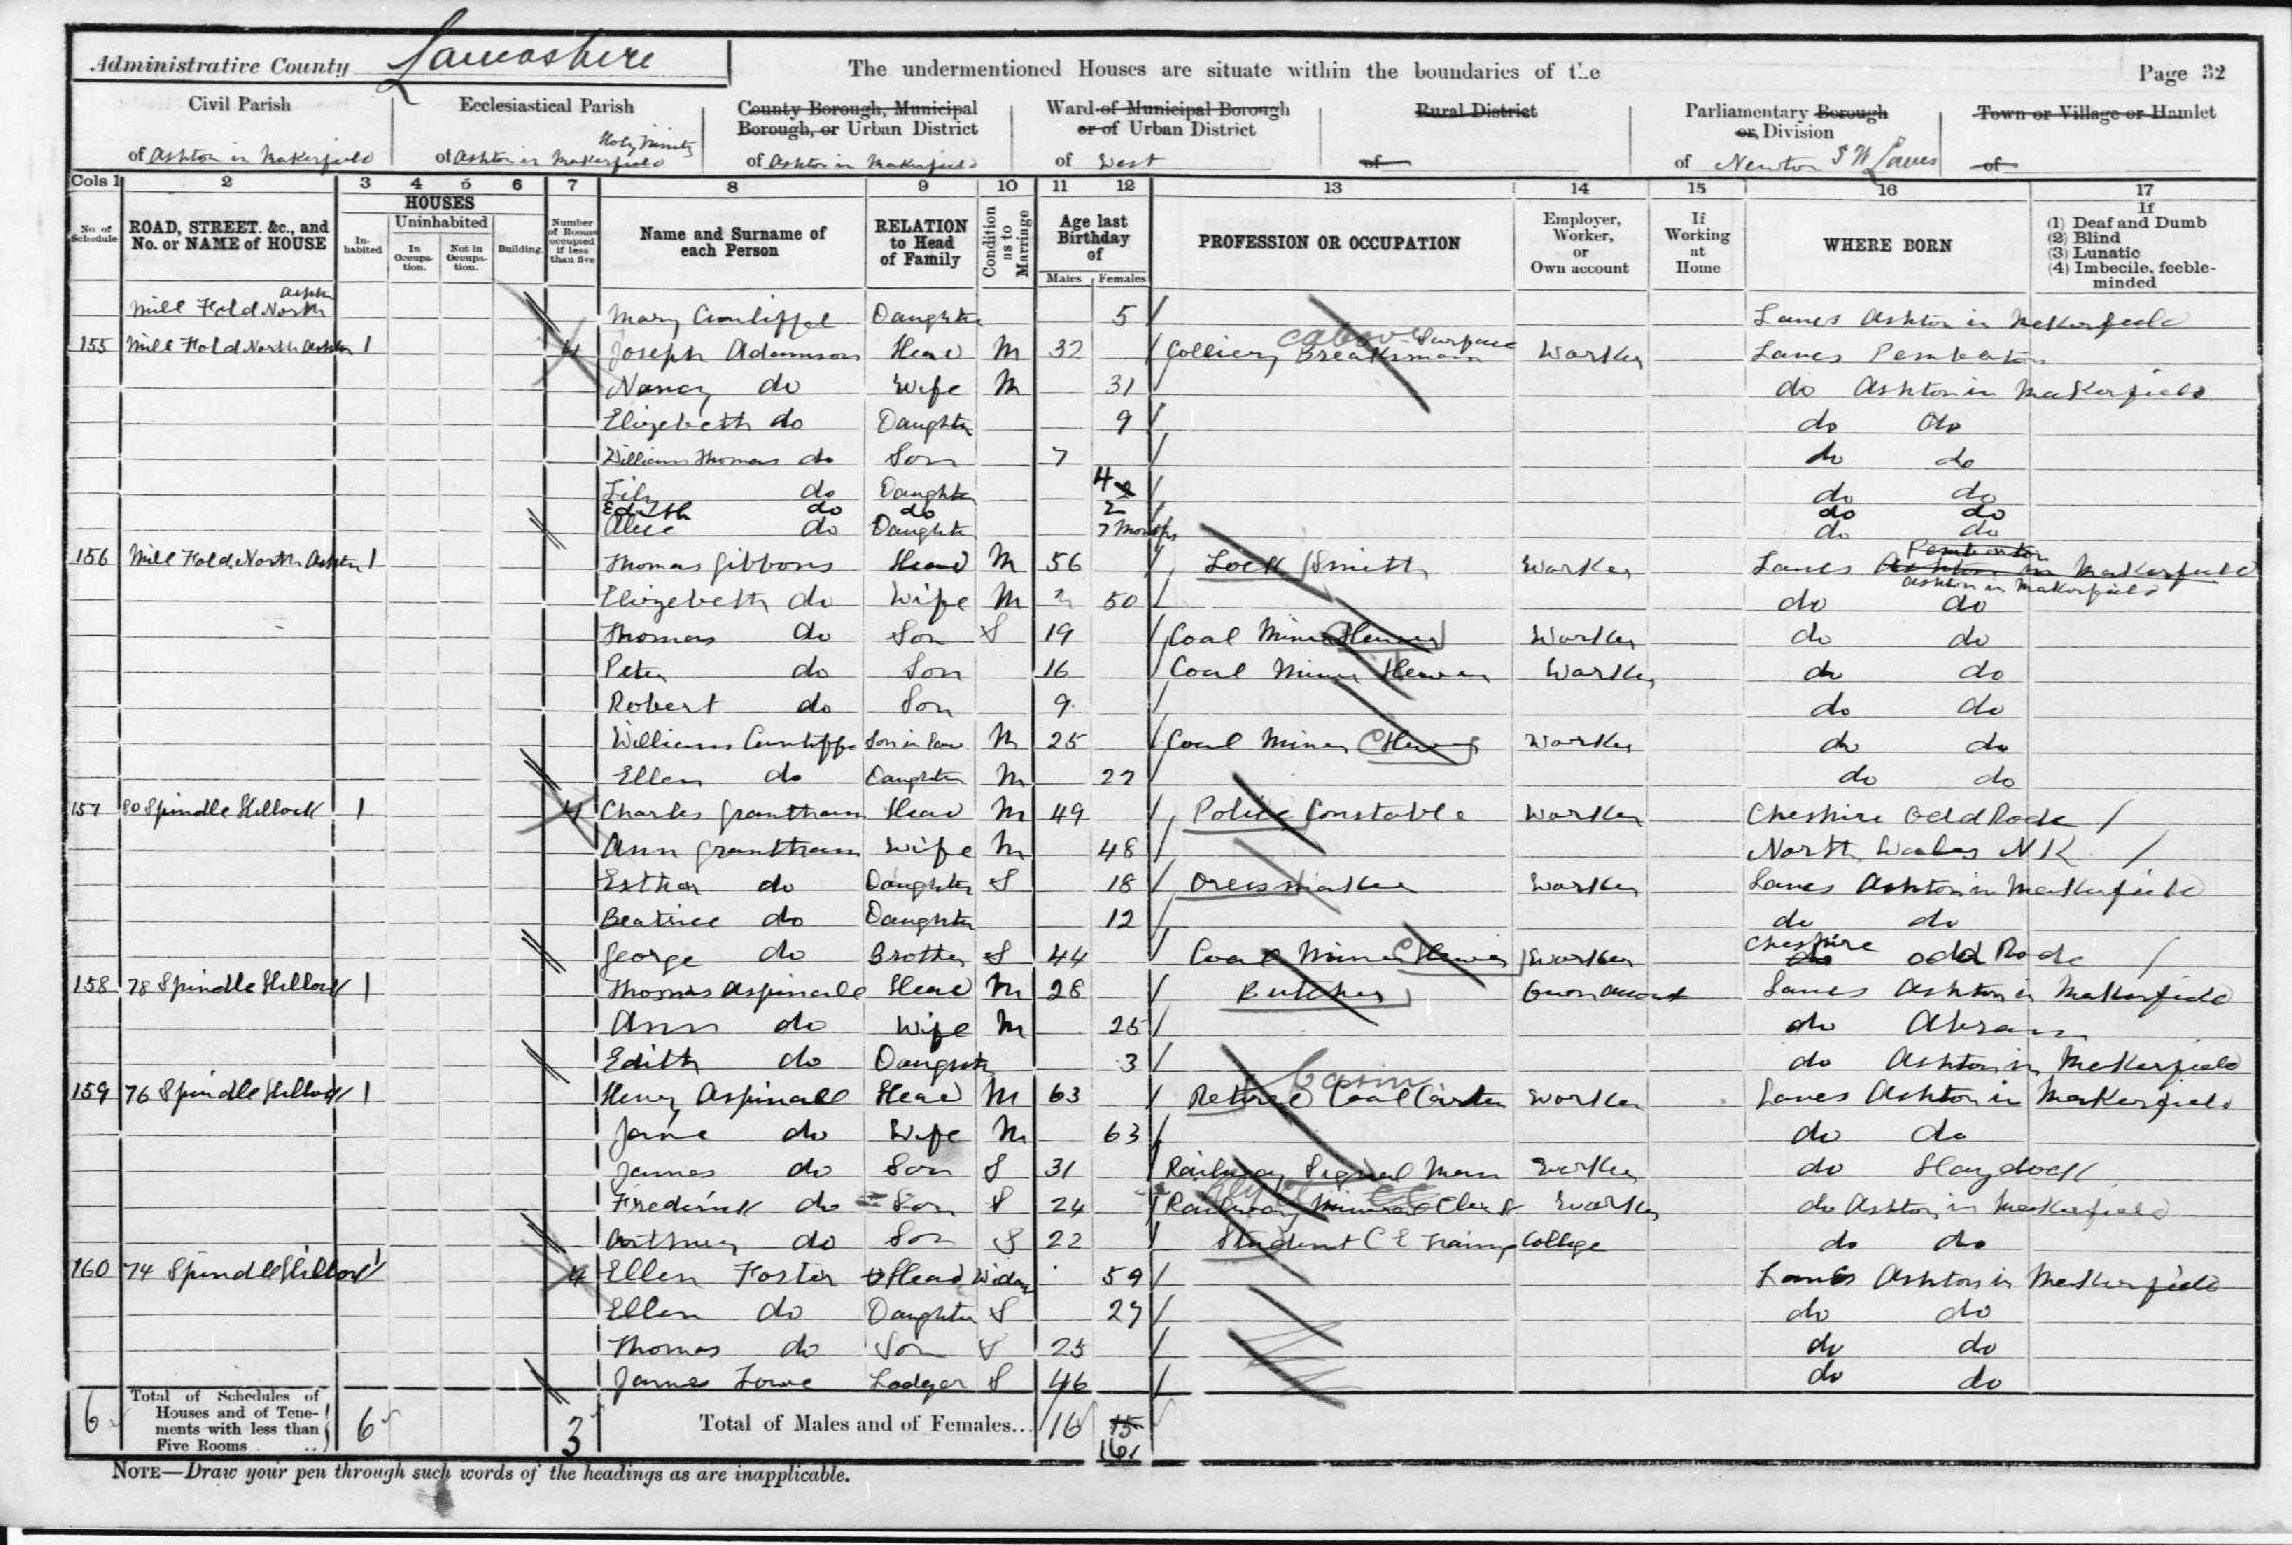 Administrative County Lancashire
The undermentioned Houses are situate within the boundaries of the
Page 32
Civil Parish
of Ashton in Makerfield
Ecclesiastical Parish
Holy Trinity
of Ashton in Makerfield
County Borough, Municipal
Borough, or Urban District
of Ashton in Makerfield
Ward of Municipal Borough
or of Urban District
of West
Rural District
of
Parliamentary Borough
or Division
of Newton S W Lancs
Town or Village or Hamlet
of
Cols 1 2 3 4 5 6 7 8 9 10 11 12 13 14 15 16 17
No of Schedule
ROAD, STREET, &c., and No. or NAME of HOUSE
HOUSES
Inhabited
Uninhabited
In Occupation.
Not in Occupation.
Building
Number of Rooms occupied if less than five
Name and Surname of each Person
RELATION to Head of Family
Condition as to Marriage
Age last Birthday of
Males Females
PROFESSION OR OCCUPATION
Employer, Worker, or Own account
If Working at Home
WHERE BORN
If
(1) Deaf and Dumb
(2) Blind
(3) Lunatic
(4) Imbecile, feeble-minded
Mill Fold North Ashton Mary Cunliffe Daughter 5 Lancs Ashton in Makerfield
155 Mill Fold North Ashton 1 4 Joseph Adamson Head M 32 Colliery Breaksman above Surface Worker Lancs Pemberton
Nancy do Wife M 31 do Ashton in Makerfield
Elizabeth do Daughter 9 do do
William Thomas do Son 7 do do
Lily do Daughter 4 do do
Edith do do 2 do do
Alice do Daughter 7 Months do do
156 Mill Fold North Ashton 1 Thomas Gibbons Head M 56 Lock Smith Worker Lancs Ashton in Makerfield Pemberton
Ashton in Makerfield
Elizabeth do Wife M 50 do do
Thomas do Son S 19 Coal Miner Hewer Worker do do
Peter do Son 16 Coal Miner Hewer Worker do do
Robert do Son 9 do do
William Cunliffe Son in Law M 25 Coal Miner Hewer Worker do do
Ellen do Daughter M 22 do do
157 80 Spindle Hillock 1 4 Charles Grantham Head M 49 Police Constable Worker Cheshire Odd Rode
Ann Grantham Wife M 48 North Wales N K
Esther do Daughter S 18 Dressmaker Worker Lancs Ashton in Makerfield
Beatrice do Daughter 12 do do
George do Brother S 44 Coal Miner Hewer Worker Cheshire Odd Rode
158 78 Spindle Hillock 1 Thomas Aspinall Head M 28 Butcher Own account Lancs Ashton in Makerfield
Ann do Wife M 25 do Abram
Edith do Daughter 3 do Ashton in Makerfield
159 76 Spindle Hillock 1 Henry Aspinall Head M 63 Retired Coal Carter Worker Lancs Ashton in Makerfield
Jane do Wife M 63 do do
James do Son S 31 Railway Signal Man Worker do Haydock
Frederick do Son S 24 Railway Mineral Clerk Worker do Ashton in Makerfield
Arthur do Son S 22 Student C E Training College do do
160 74 Spindle Hillock 1 4 Ellen Foster Head Widow 59 Lancs Ashton in Makerfield
Ellen do Daughter S 27 do do
Thomas do Son S 25 do do
James Lowe Lodger S 46 do do
6 Total of Schedules of Houses and of Tenements with less than Five Rooms 6 3 Total of Males and of Females... 16 15
16
NOTE—Draw your pen through such words of the headings as are inapplicable.